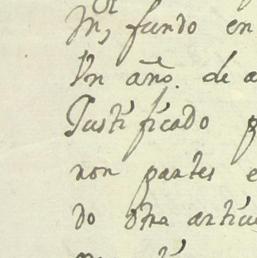 fundo en
Un año. de a
Justificado p
non partes e
do otra artícu